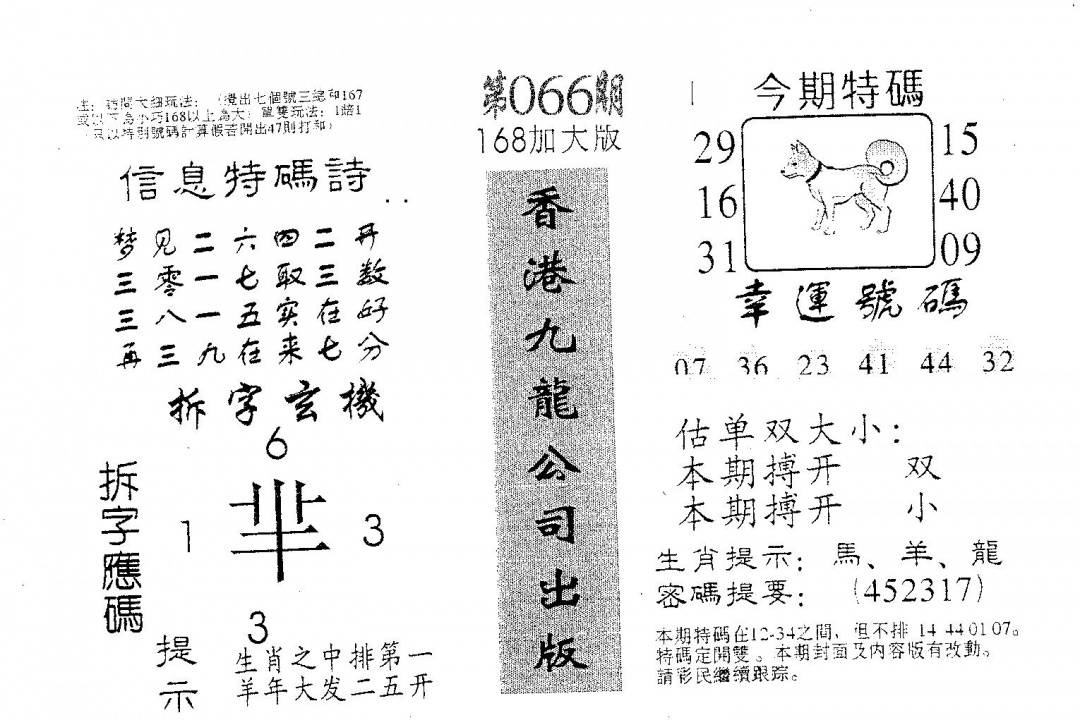 注：訪問大細玩法：（攪出七個號三總和167
或以下為小巧168以上為大）單雙玩法：1賠1
（只以特別號碼計算假若開出47則打和）
信息特碼詩
梦见二六四二开
三零一七取三数
三八一五实在好
再三九在来七分
拆字玄機
6
1
3
3
拆字應碼
提示
生肖之中排第一
羊年大发二五开
第066期
168加大版
香港九龍公司出版
今期特碼
29
15
16
40
31
09
幸運號碼
07 36 23 41 44 32
估单双大小：
本期搏开 双
本期搏开 小
生肖提示：馬、羊、龍
密碼提要：（452317）
本期特碼在12-34之間，但不排 14 44 01 07。
特碼定開雙。本期封面及内容版有改動。
請彩民繼續跟踪。